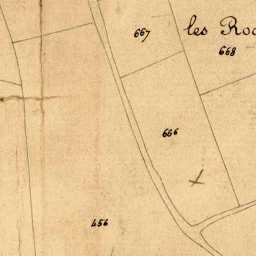 667
les Roc
668
666
456